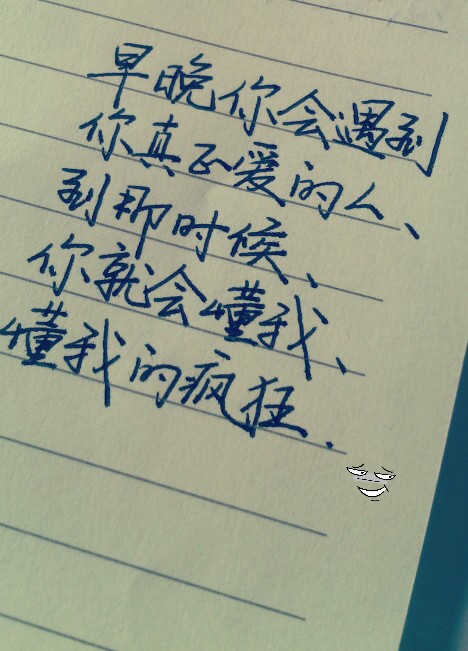 早晚你会遇到
你真正爱的人、
到那时候、
你就会懂我、
懂我的疯狂.